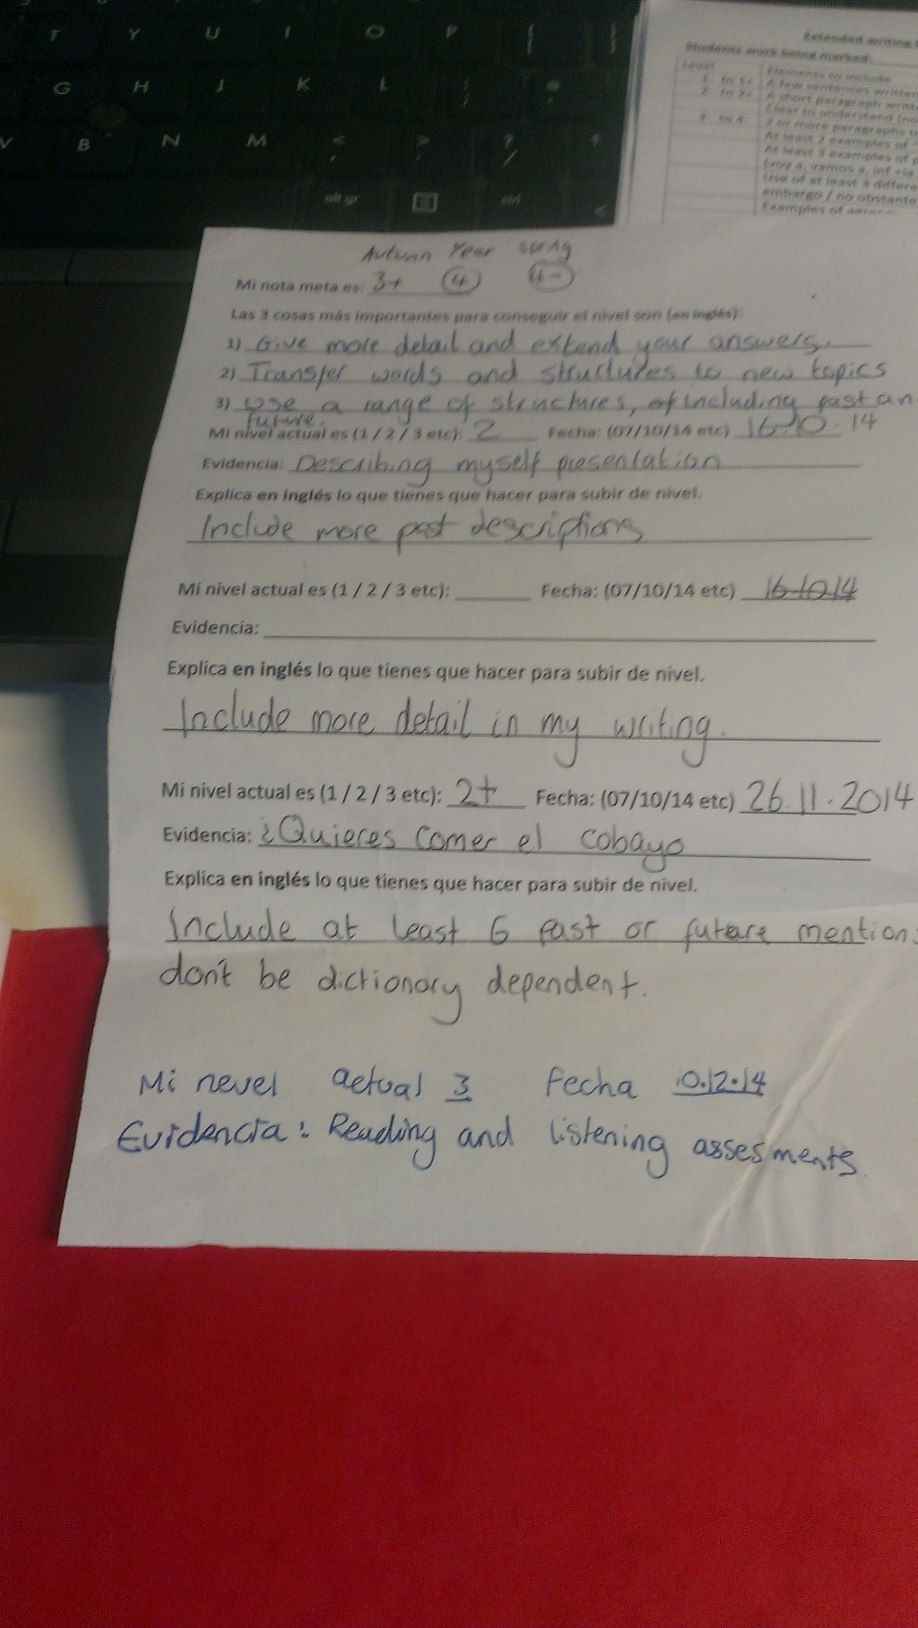 T Y U I O P { }
[ ]
G H J K L ; @
V B N M < > ? ↑
, . /
alt gr ctrl <
Extended writing
Students work being marked:
Level Elements to include
1 to 1+ A few sentences written
2 to 2+ A short paragraph writt
Clear to understand (no
3 to 4 2 or more paragraphs
At least 2 examples of
At least 3 examples of
(voy a, vamos a, inf +ía
Use of at least 3 differe
embargo / no obstante
Examples of
Autumn Year spring
Mi nota meta es: 3+ 4 4-
Las 3 cosas más importantes para conseguir el nivel son (en inglés):
1) Give more detail and extend your answers.
2) Transfer words and structures to new topics
3) use a range of structures, including past an
future.
Mi nivel actual es (1 / 2 / 3 etc): 2 Fecha: (07/10/14 etc) 16.10.14
Evidencia: Describing myself presentation
Explica en inglés lo que tienes que hacer para subir de nivel.
Include more past descriptions
Mi nivel actual es (1 / 2 / 3 etc): Fecha: (07/10/14 etc) 16.10.14
Evidencia:
Explica en inglés lo que tienes que hacer para subir de nivel.
Include more detail in my writing.
Mi nivel actual es (1 / 2 / 3 etc): 2+ Fecha: (07/10/14 etc) 26.11.2014
Evidencia: ¿Quieres comer el cobayo
Explica en inglés lo que tienes que hacer para subir de nivel.
Include at least 6 past or future mention
don't be dictionary dependent.
Mi nevel actual 3 Fecha 10.12.14
Evidencia: Reading and listening assesments.